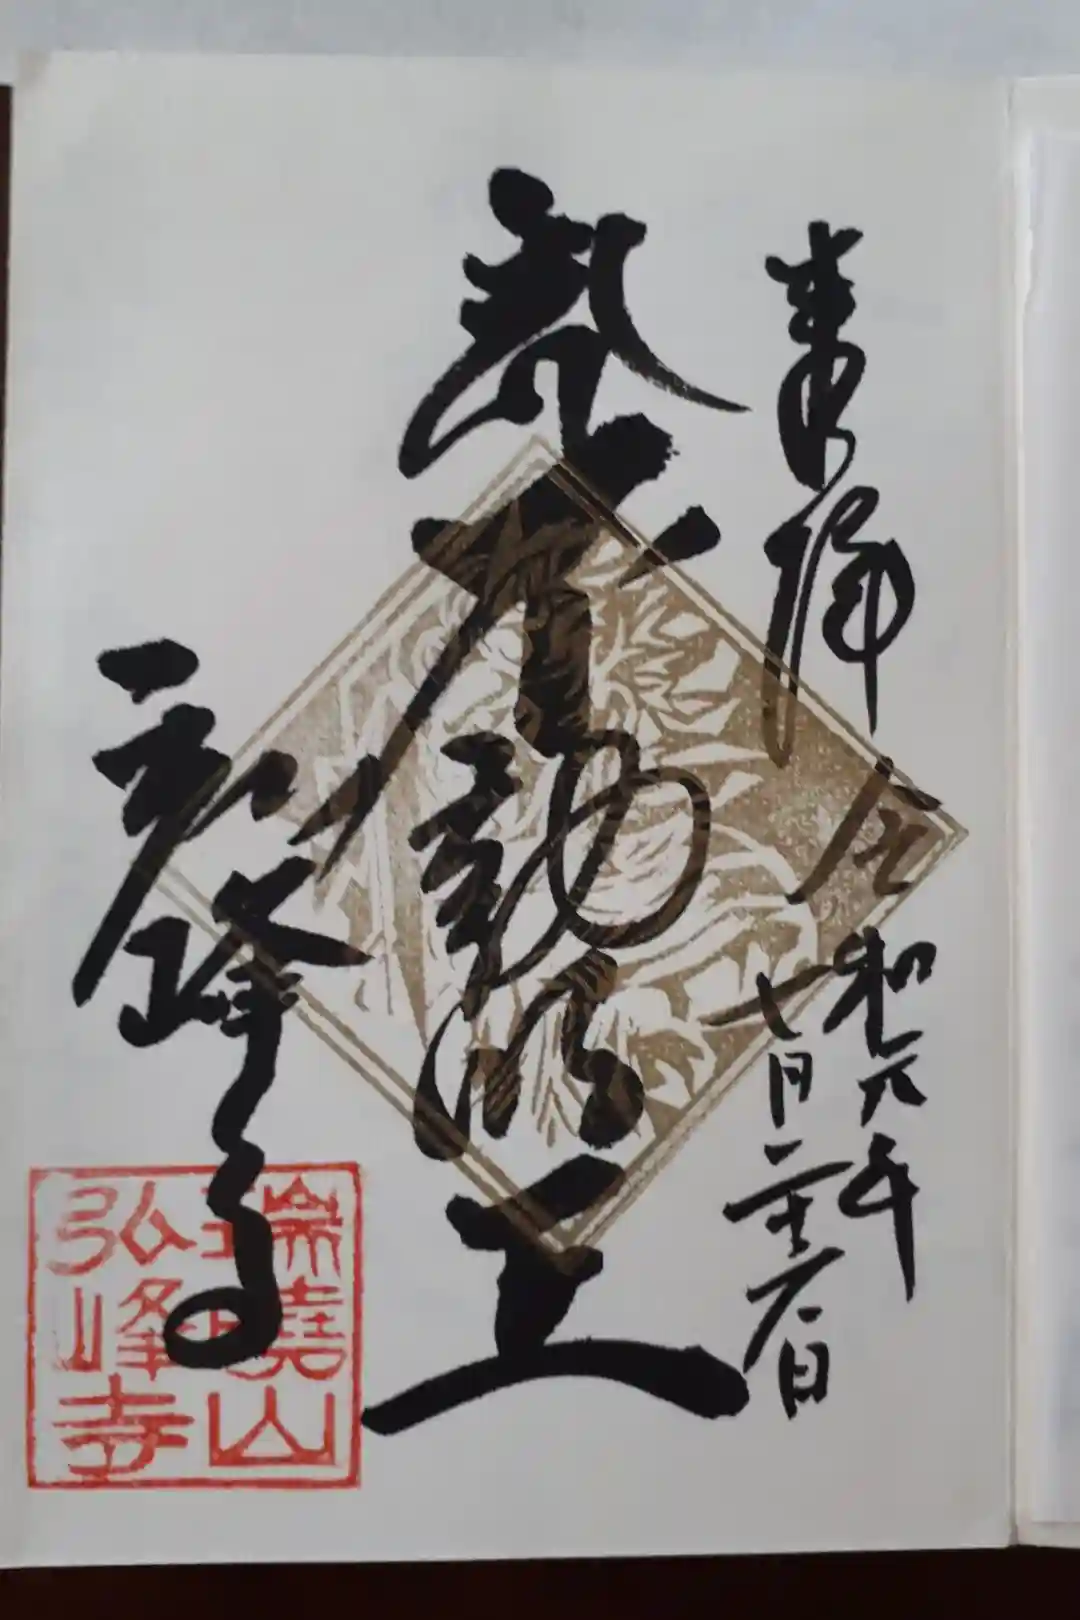 奉拝
令和六年
七月二十六日
不動明王
弘峰寺
瑞曉山
弘峰寺